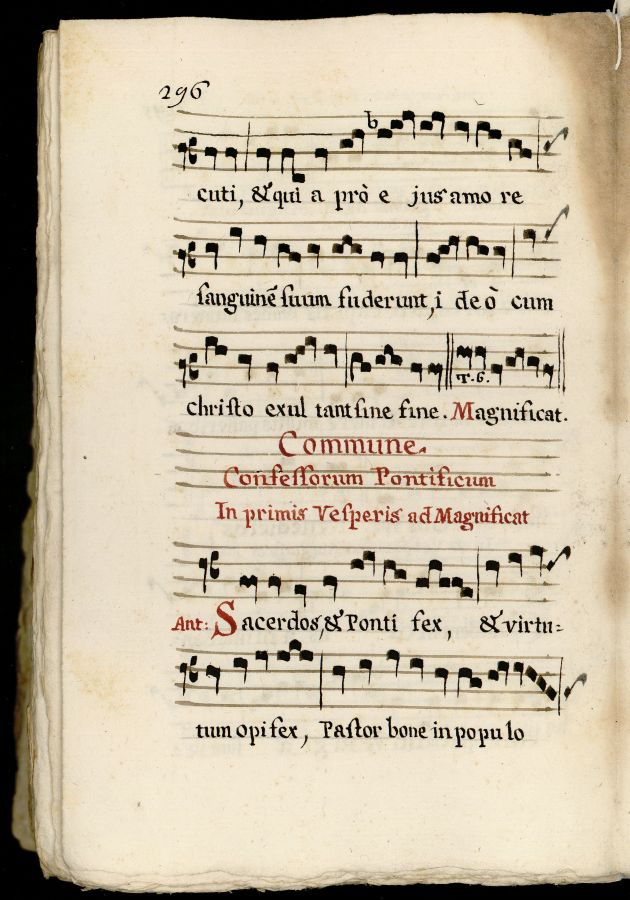 296
b
cuti, & qui a prò e jus amo re
sanguinẽ suum fuderunt, i deò cum
T. 6.
christo exul tant sine fine. Magnificat.
Commune.
Confessorum Pontificum
In primis Vesperis ad Magnificat
Ant: Sacerdos, & Ponti fex, & virtu=
tum opifex, Pastor bone in populo